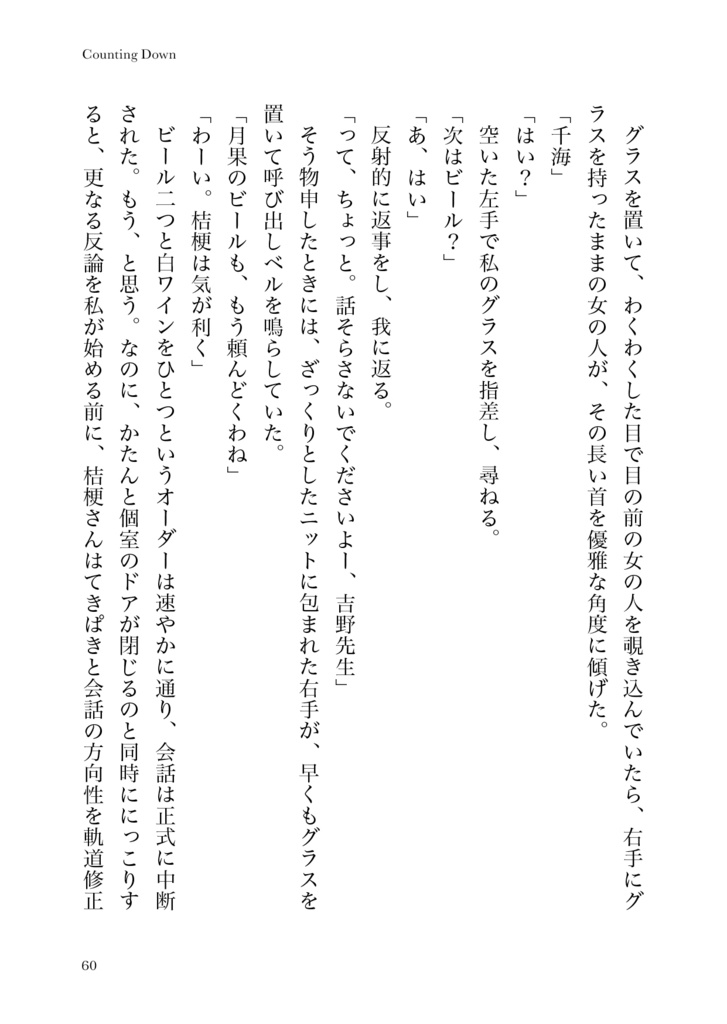 Counting Down
　グラスを置いて、わくわくした目で目の前の女の人を覗き込んでいたら、右手にグ
ラスを持ったままの女の人が、その長い首を優雅な角度に傾げた。
「千海」
「はい？」
　空いた左手で私のグラスを指差し、尋ねる。
「次はビール？」
「あ、はい」
　反射的に返事をし、我に返る。
「って、ちょっと。話そらさないでくださいよー、吉野先生」
　そう物申したときには、ざっくりとしたニットに包まれた右手が、早くもグラスを
置いて呼び出しベルを鳴らしていた。
「月果のビールも、もう頼んどくわね」
「わーい。桔梗は気が利く」
　ビール二つと白ワインをひとつというオーダーは速やかに通り、会話は正式に中断
された。もう、と思う。なのに、かたんと個室のドアが閉じるのと同時ににっこりす
ると、更なる反論を私が始める前に、桔梗さんはてきぱきと会話の方向性を軌道修正
60